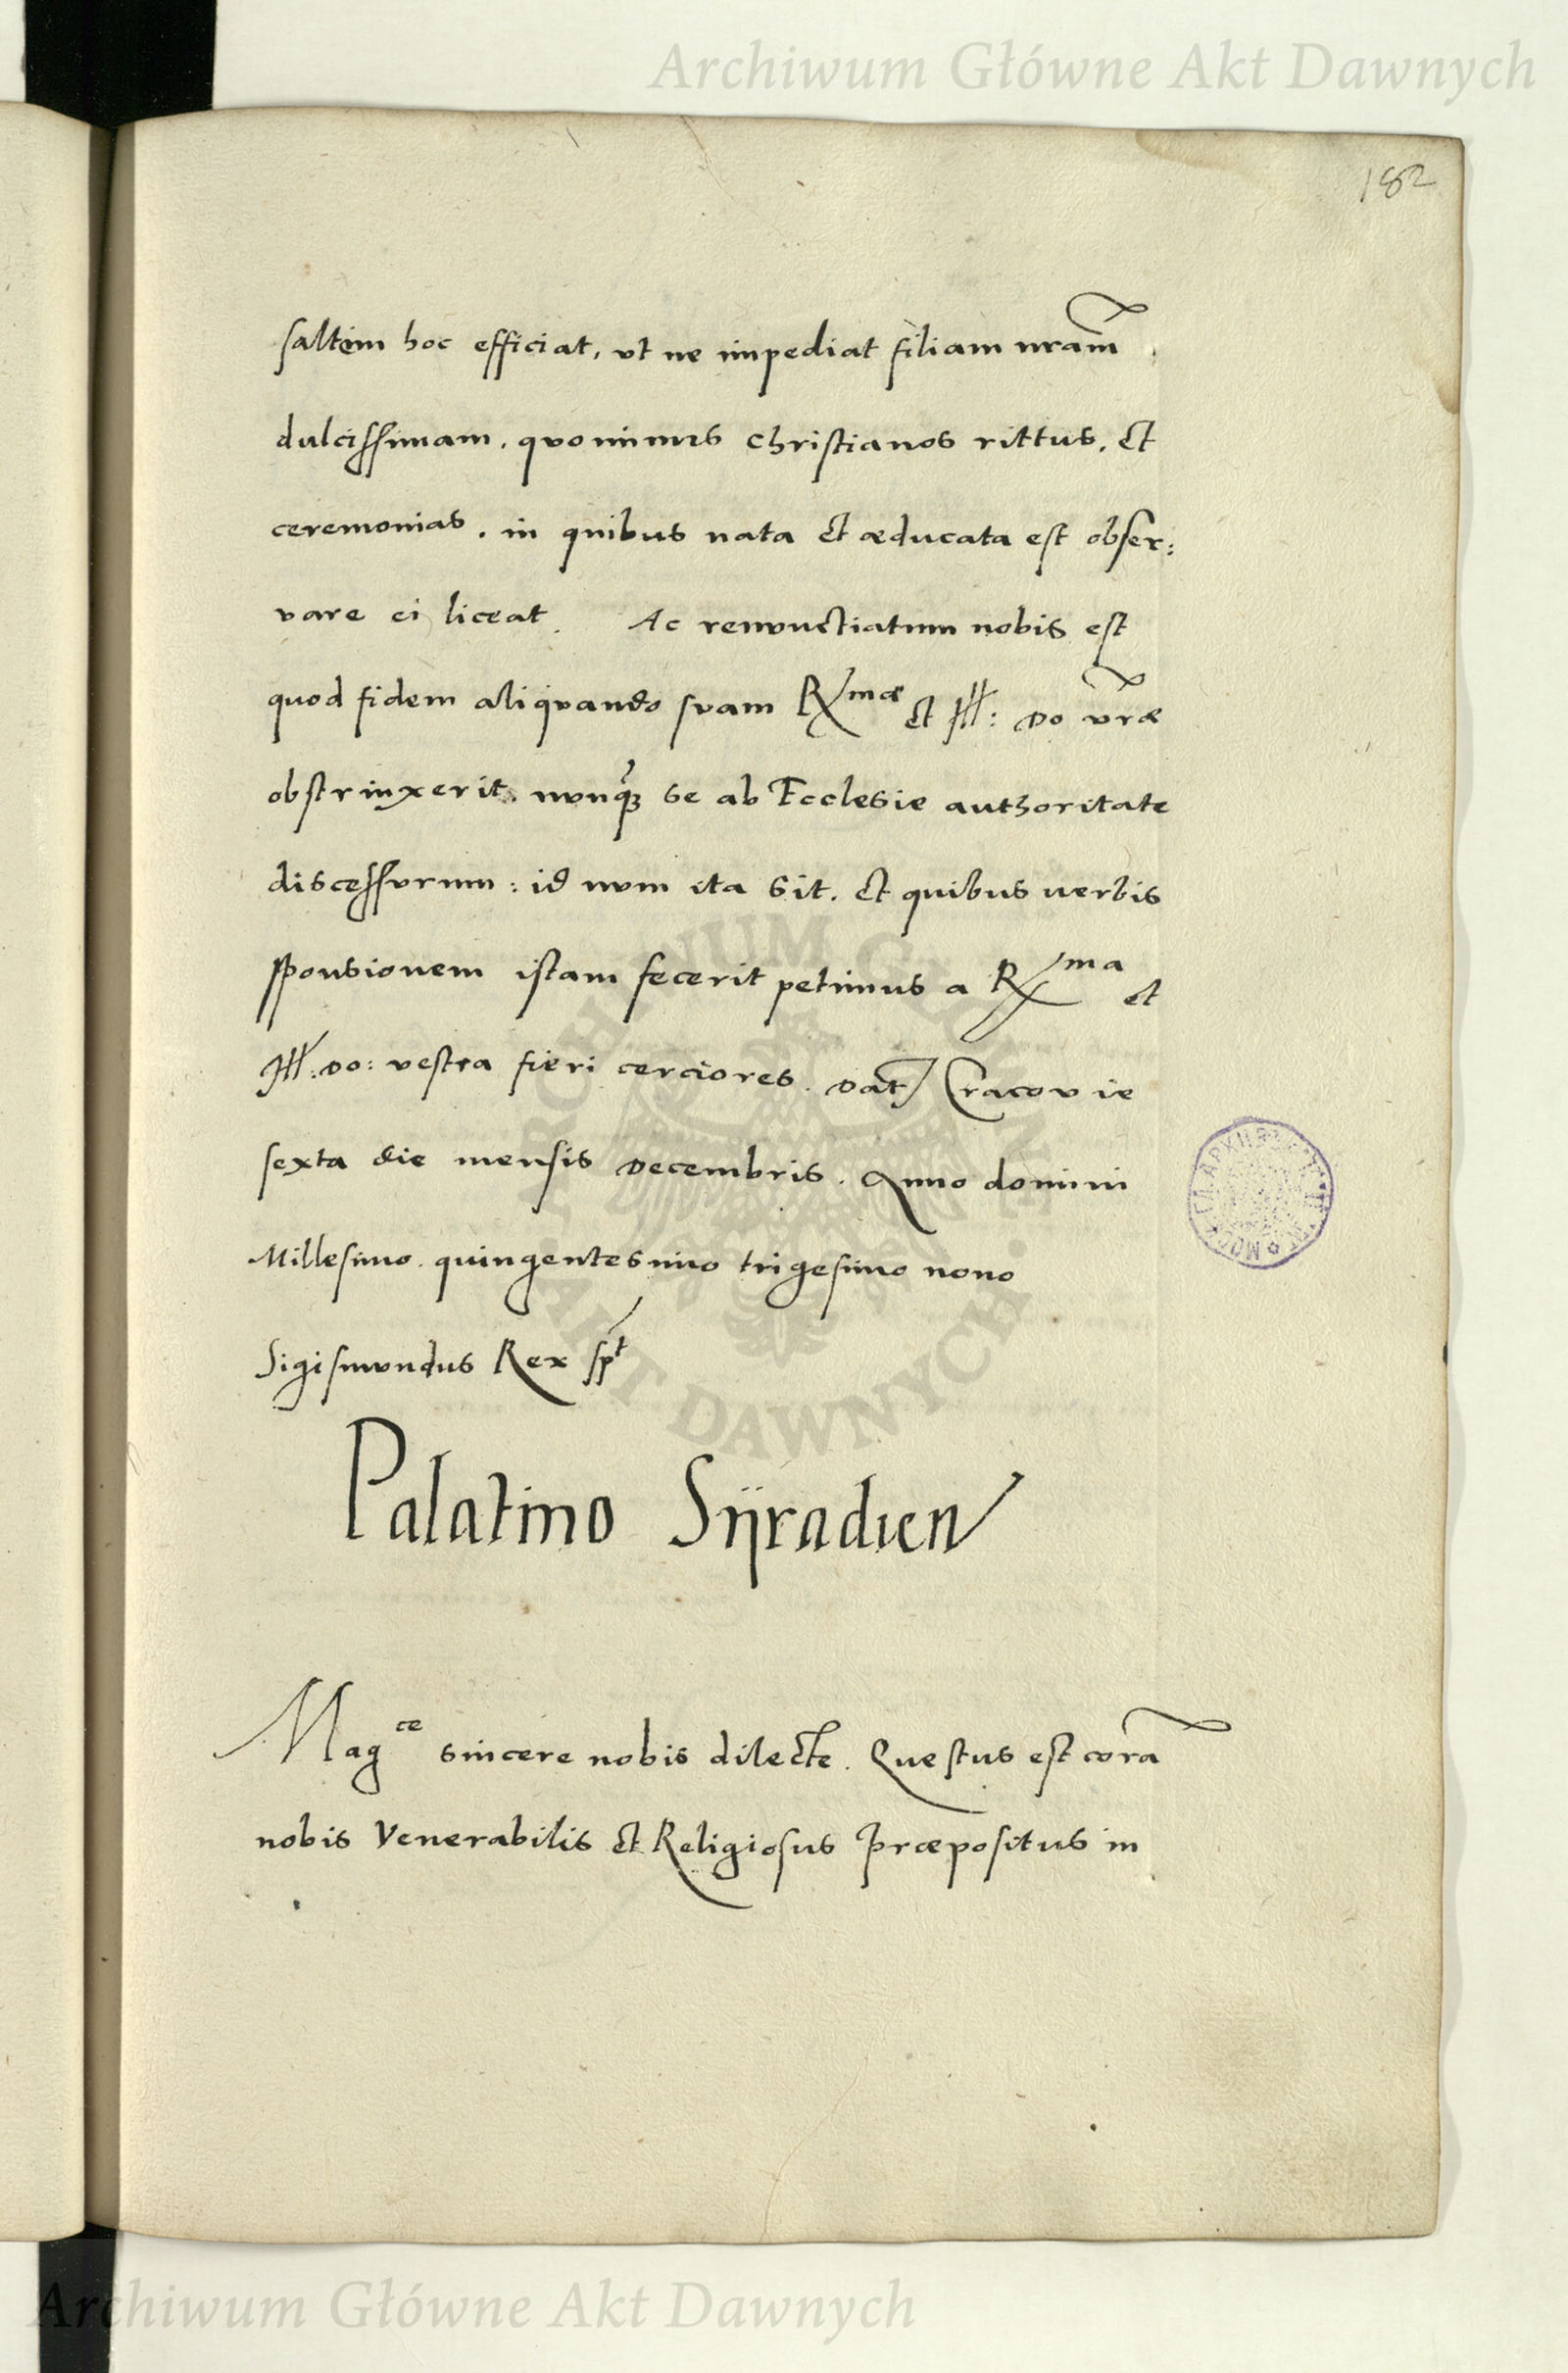 Archiwum Główne Akt Dawnych
182
saltim hoc efficiat, ut ne impediat filiam nram
dulcissimam, quominus christianos rittus, et
ceremonias, in quibus nata et æducata est obser:
vare ei liceat. Ac renunctiatum nobis est
quod fidem aliquando suam Rmæ et Ill: Do vræ
obstrinxerit, nunq3 se ab Ecclesie authoritate
discessurum: id num ita sit, et quibus verbis
sponsionem istam fecerit petimus a Rma et
Ill: Do: vestra fieri cerciores. Dat Cracovie
sexta die mensis Decembris. Anno domini
Millesimo quingentesimo trigesimo nono
Sigismundus Rex spt
Palatino Sijradien
Magce sincere nobis dilecte. Questus est cora
nobis Venerabilis et Religiosus Præpositus in
ARCHIWUM GŁÓWNE
AKT DAWNYCH
Archiwum Główne Akt Dawnych